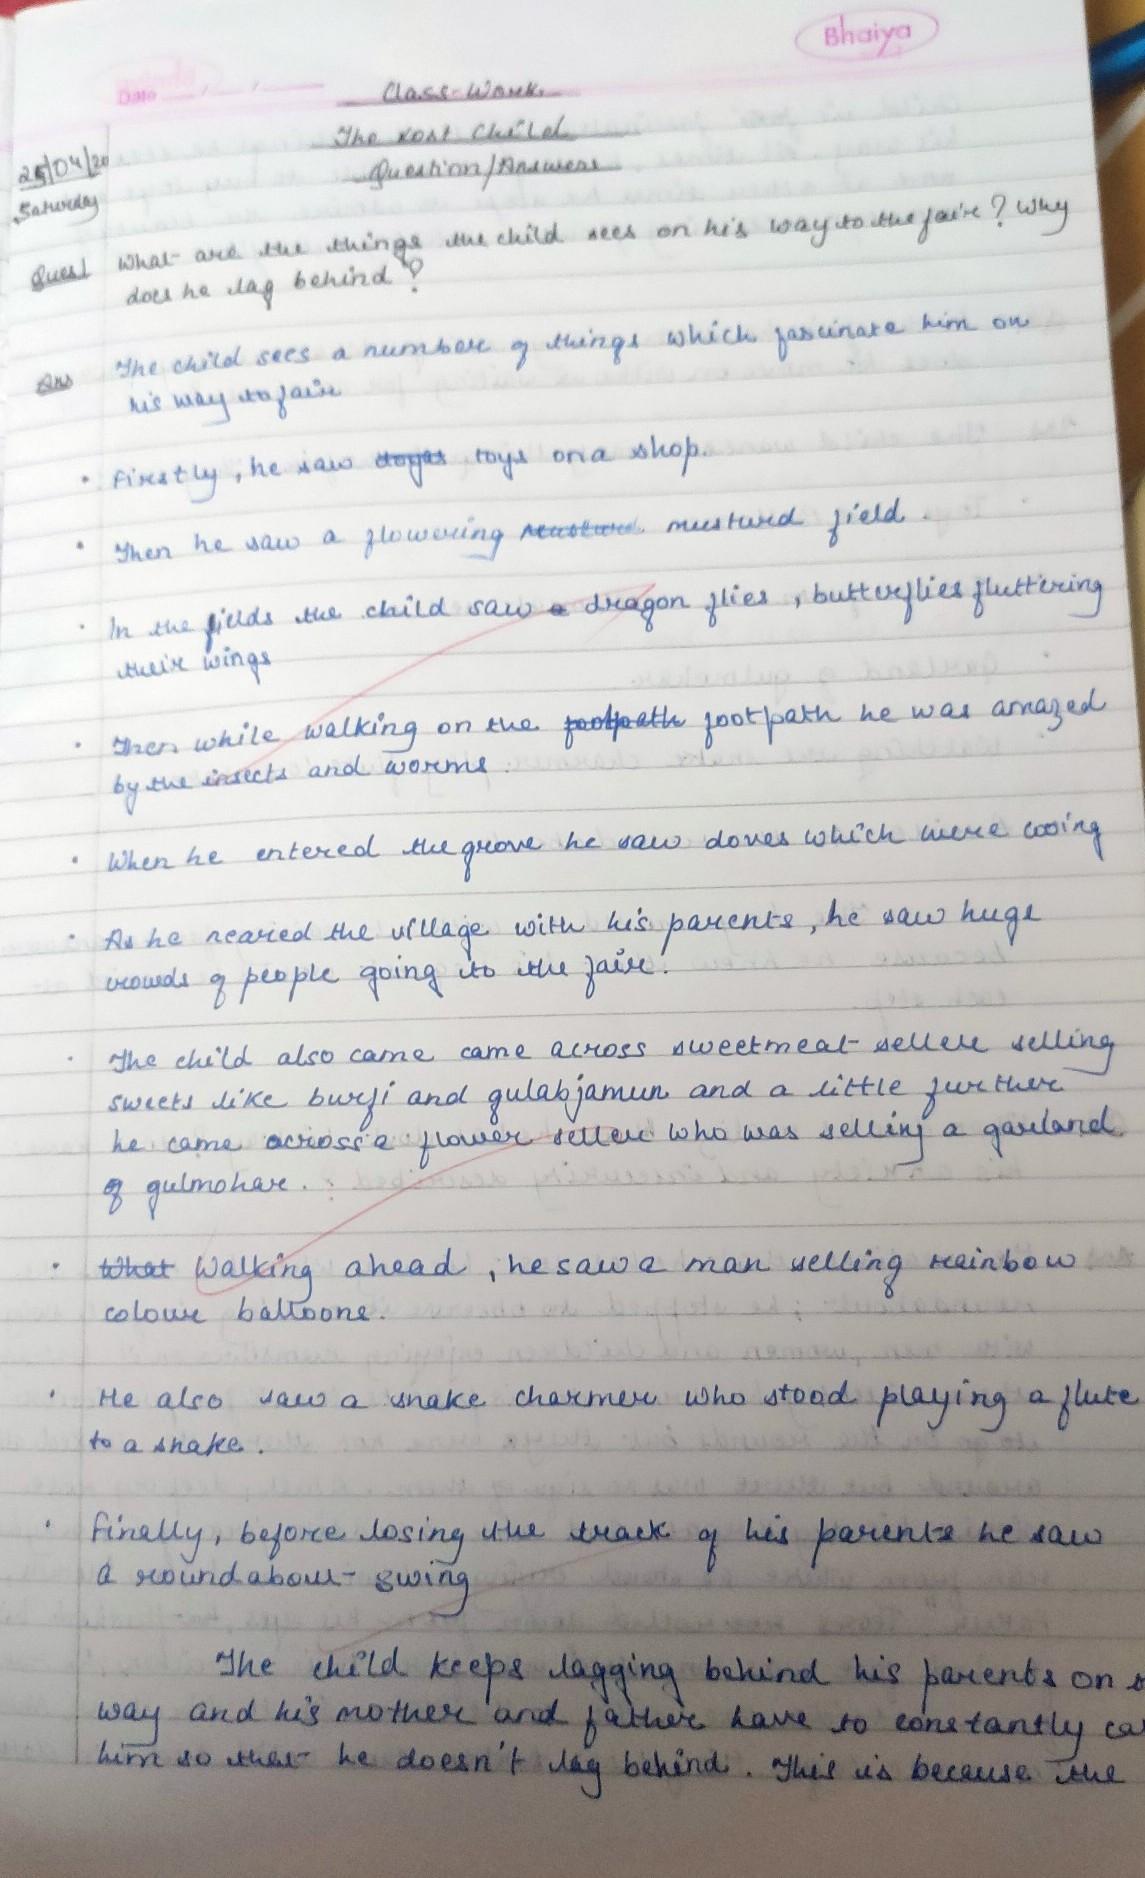 Bhaiya
Date
Class-Work
The Lost Child
Question/Answers
25/04/20
Saturday
Ques1 What are the things the child sees on his way to the faire? Why
does he lag behind?
Ans The child sees a number of things which fascinate him on
his way to faire
• Firstly, he saw toys on a shop.
• Then he saw a flowering musturd field.
• In the fields the child saw dragon flies, butterflies fluttering
their wings
• Then while walking on the footpath footpath he was amazed
by the insects and worms.
• When he entered the grove he saw doves which were cooing
• As he neared the village with his parents, he saw huge
crowds of people going to the faire.
• The child also came came across sweetmeat seller selling
sweets like burfi and gulabjamun and a little further
he came across a flower seller who was selling a garland
of gulmohar.
• What Walking ahead, he saw a man selling rainbow
colour balloons.
• He also saw a snake charmer who stood playing a flute
to a snake.
• Finally, before losing the track of his parents he saw
a roundabout swing
The child keeps lagging behind his parents on
way and his mother and father have to constantly ca
him so that he doesn't lag behind. This is because the